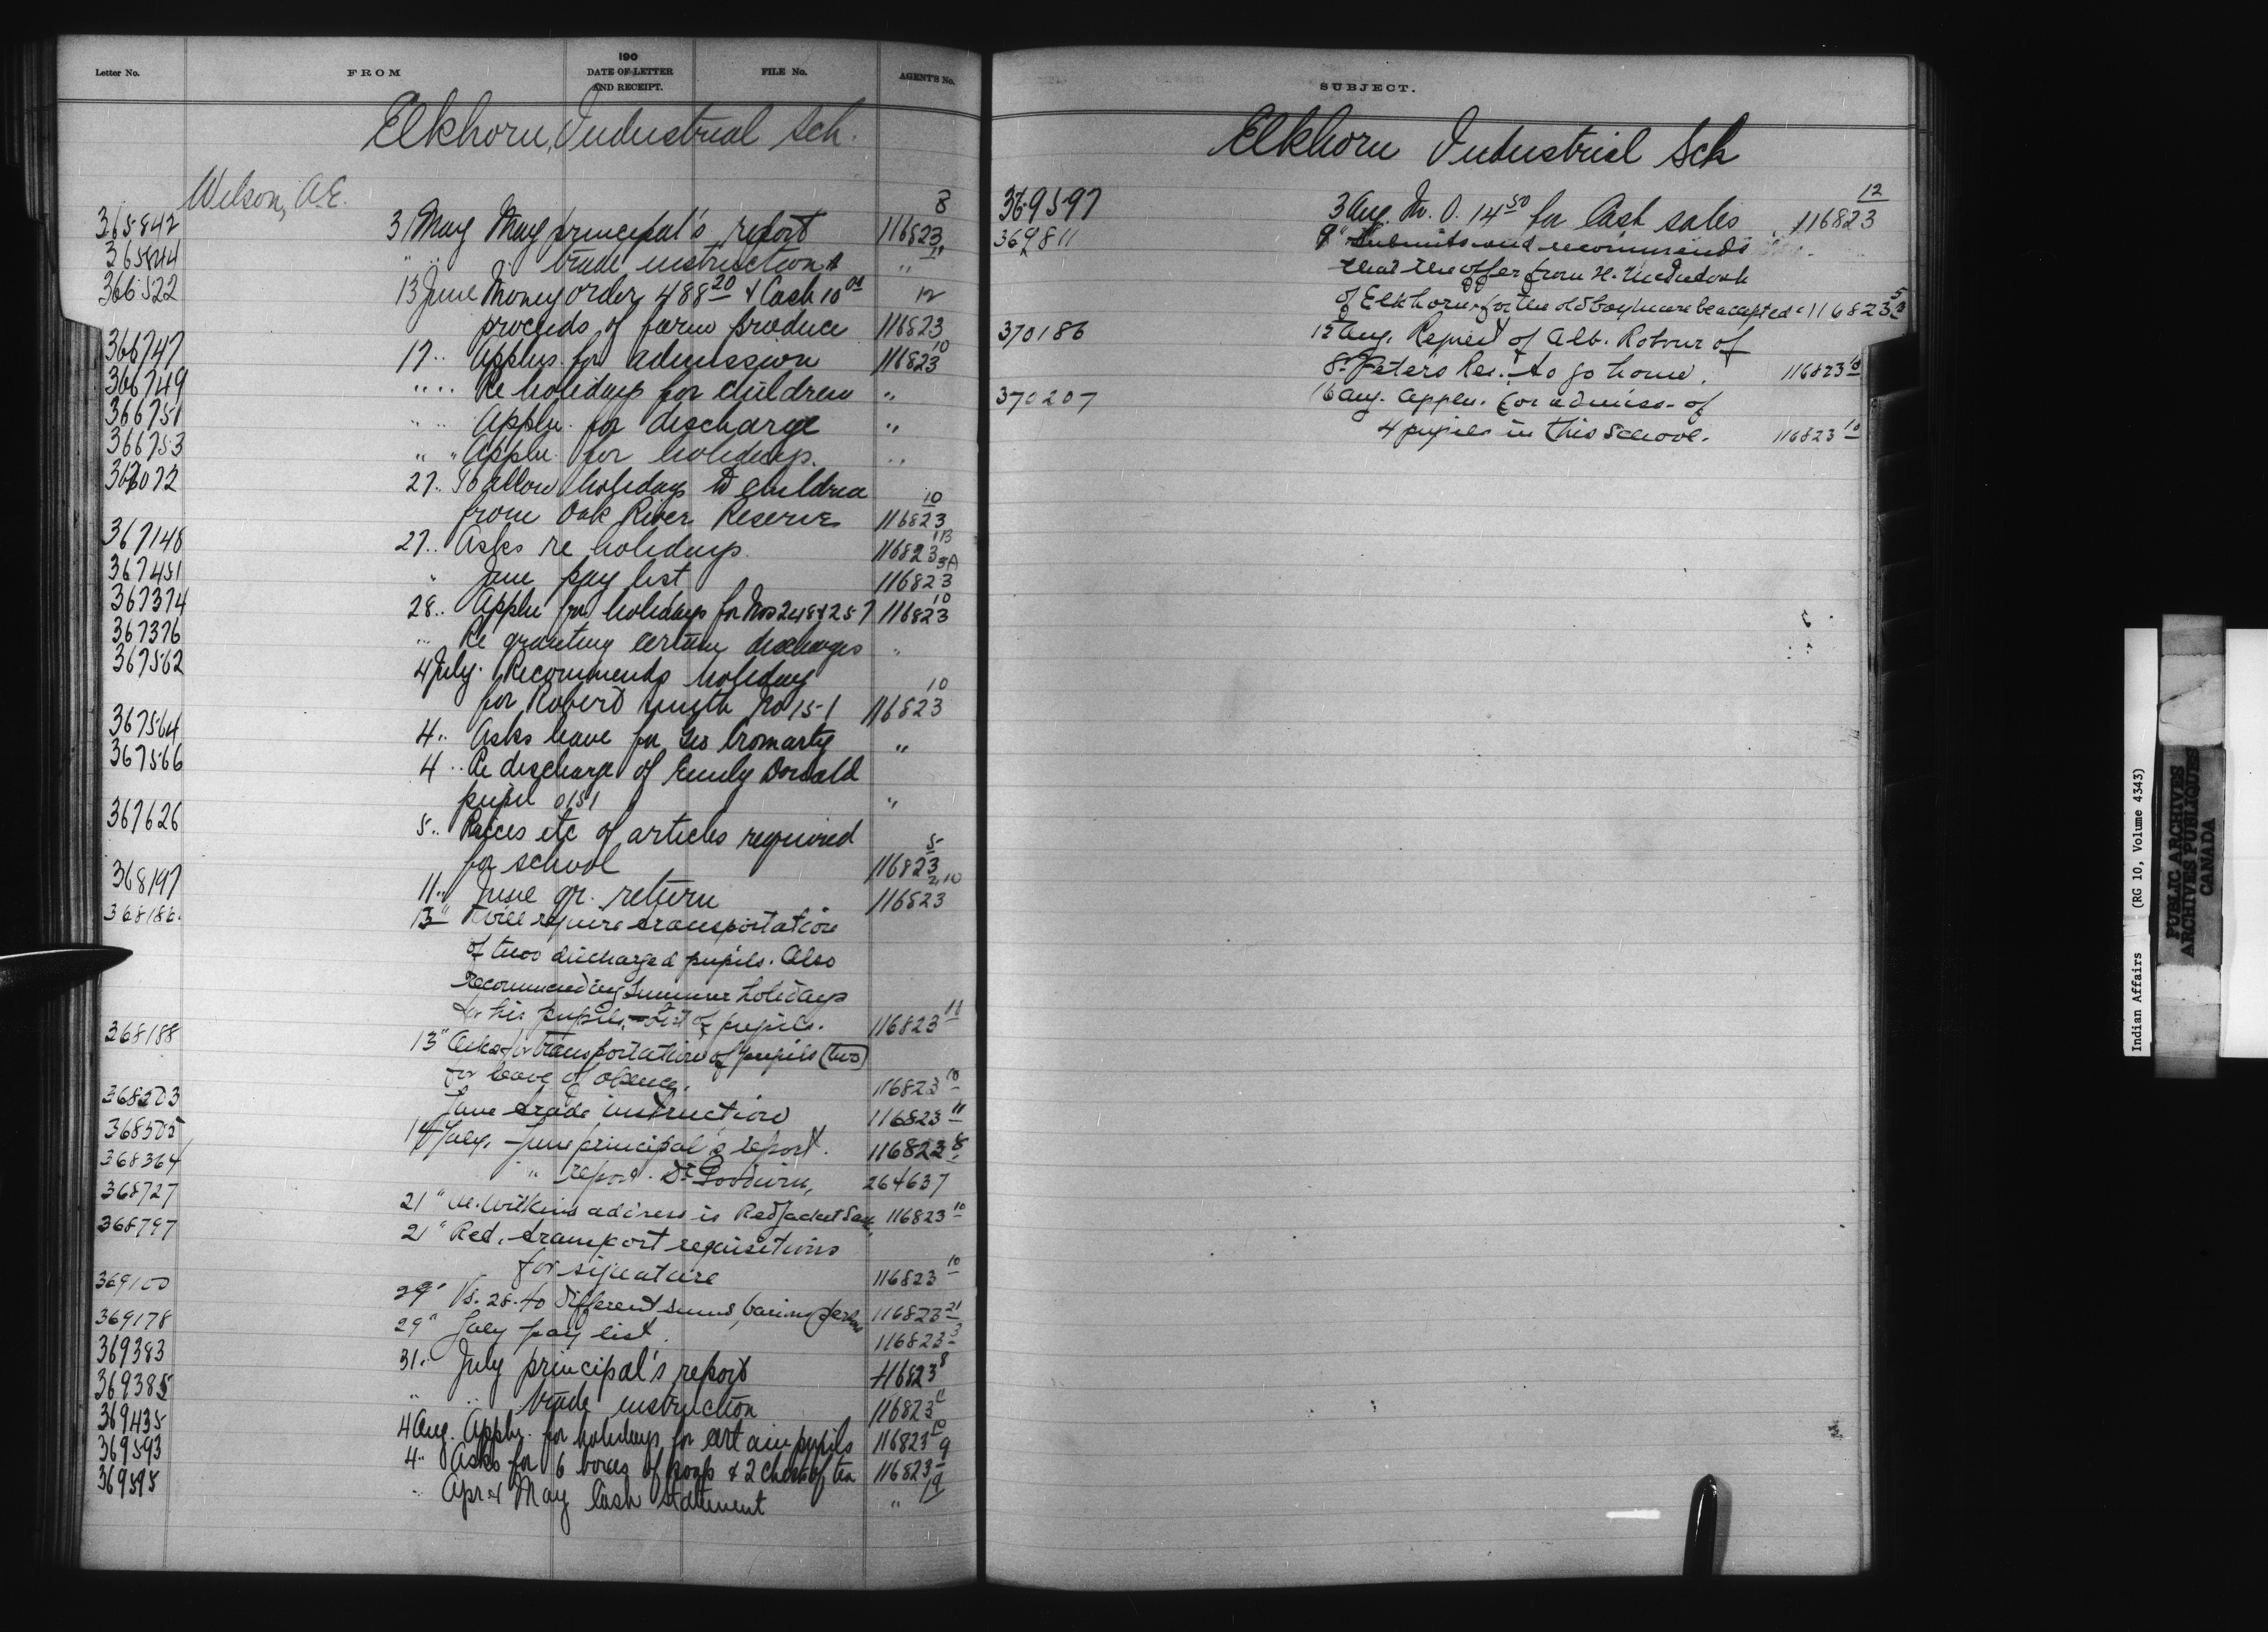 190
Letter No. FROM DATE OF LETTER AND RECEIPT. FILE No. AGENT'S No.
Elkhorn, Industrial Sch.
Wilson, A.E.
8
365842 31 May May principal's report 116823
11
365844 " " " trade instructions "
366522 13 June Money order 488 20 & Cash 10 00 12
proceeds of farm produce 116823
10
366747 17 .. Applns. for admission 116823
366749 " .. Re holidays for children "
366751 " .. Appln. for discharge "
366753 " " Appln. for holidays. "
367072 27 .. To allow holidays to children 10
from Oak River Reserve 116823
367148 27 .. Asks re holidays. 116823
3A
367451 " June pay list 116823
10
367374 28 .. Appln for holidays for Nos 248 & 257 116823
367376 " Re granting certain discharges "
367562 4 July. Recommends holiday 10
for Robert Smyth No 151 116823
367564 4 .. Asks leave for Geo Cromarty "
367566 4 .. Re discharge of Emily Donald
pupil 0151 "
367626 5 .. Prices etc of articles required 5
for school 116823
2,10
368197 11 .. June qr. return 116823
368186. 13 " Will require transportation
of two discharged pupils. Also
recommending summer holidays
for his pupils, - list of pupils. 116823 11
368188 13 " Asks for transportation of pupils (two)
on leave of absence. 116823 10
368503 June trade instruction 116823 11
368505 14 July. June principal's report. 116823 8
368364 " report. Dr Goodwin, 264637
368727 21 " Wilkins address is Red Jacket Sask. 116823 10
368797 21 " Red. transport requisitions
for signature 116823 10
369100 29 " Vs. 28.40 different sums, 116823 21
369178 29 " July pay list. 116823 3
369383 31 .. July principal's report 116823 8
369385 " " trade instruction 116823 11
369435 4 Aug. Appln. for holidays for certain pupils 116823 10
369593 4 .. Asks for 6 boxes of soap & 2 chests of tea 116823 9
369595 " Apr & May Cash statement " 19
SUBJECT.
Elkhorn Industrial Sch
12
369597 3 Aug. M.O. 14 50 for Cash sales 116823
369811 9 " Submits and recommends
that the offer from H. McIntosh
of Elkhorn, for the old boy's home be accepted 116823 5
370186 15 Aug. Request of Alb. Rotour of
St. Peter's Res. to go home. 116823 10
370207 16 Aug. Appln. for admiss. of
4 pupils in this School. 116823 10
Indian Affairs (RG 10, Volume 4343)
PUBLIC ARCHIVES
ARCHIVES PUBLIQUES
CANADA